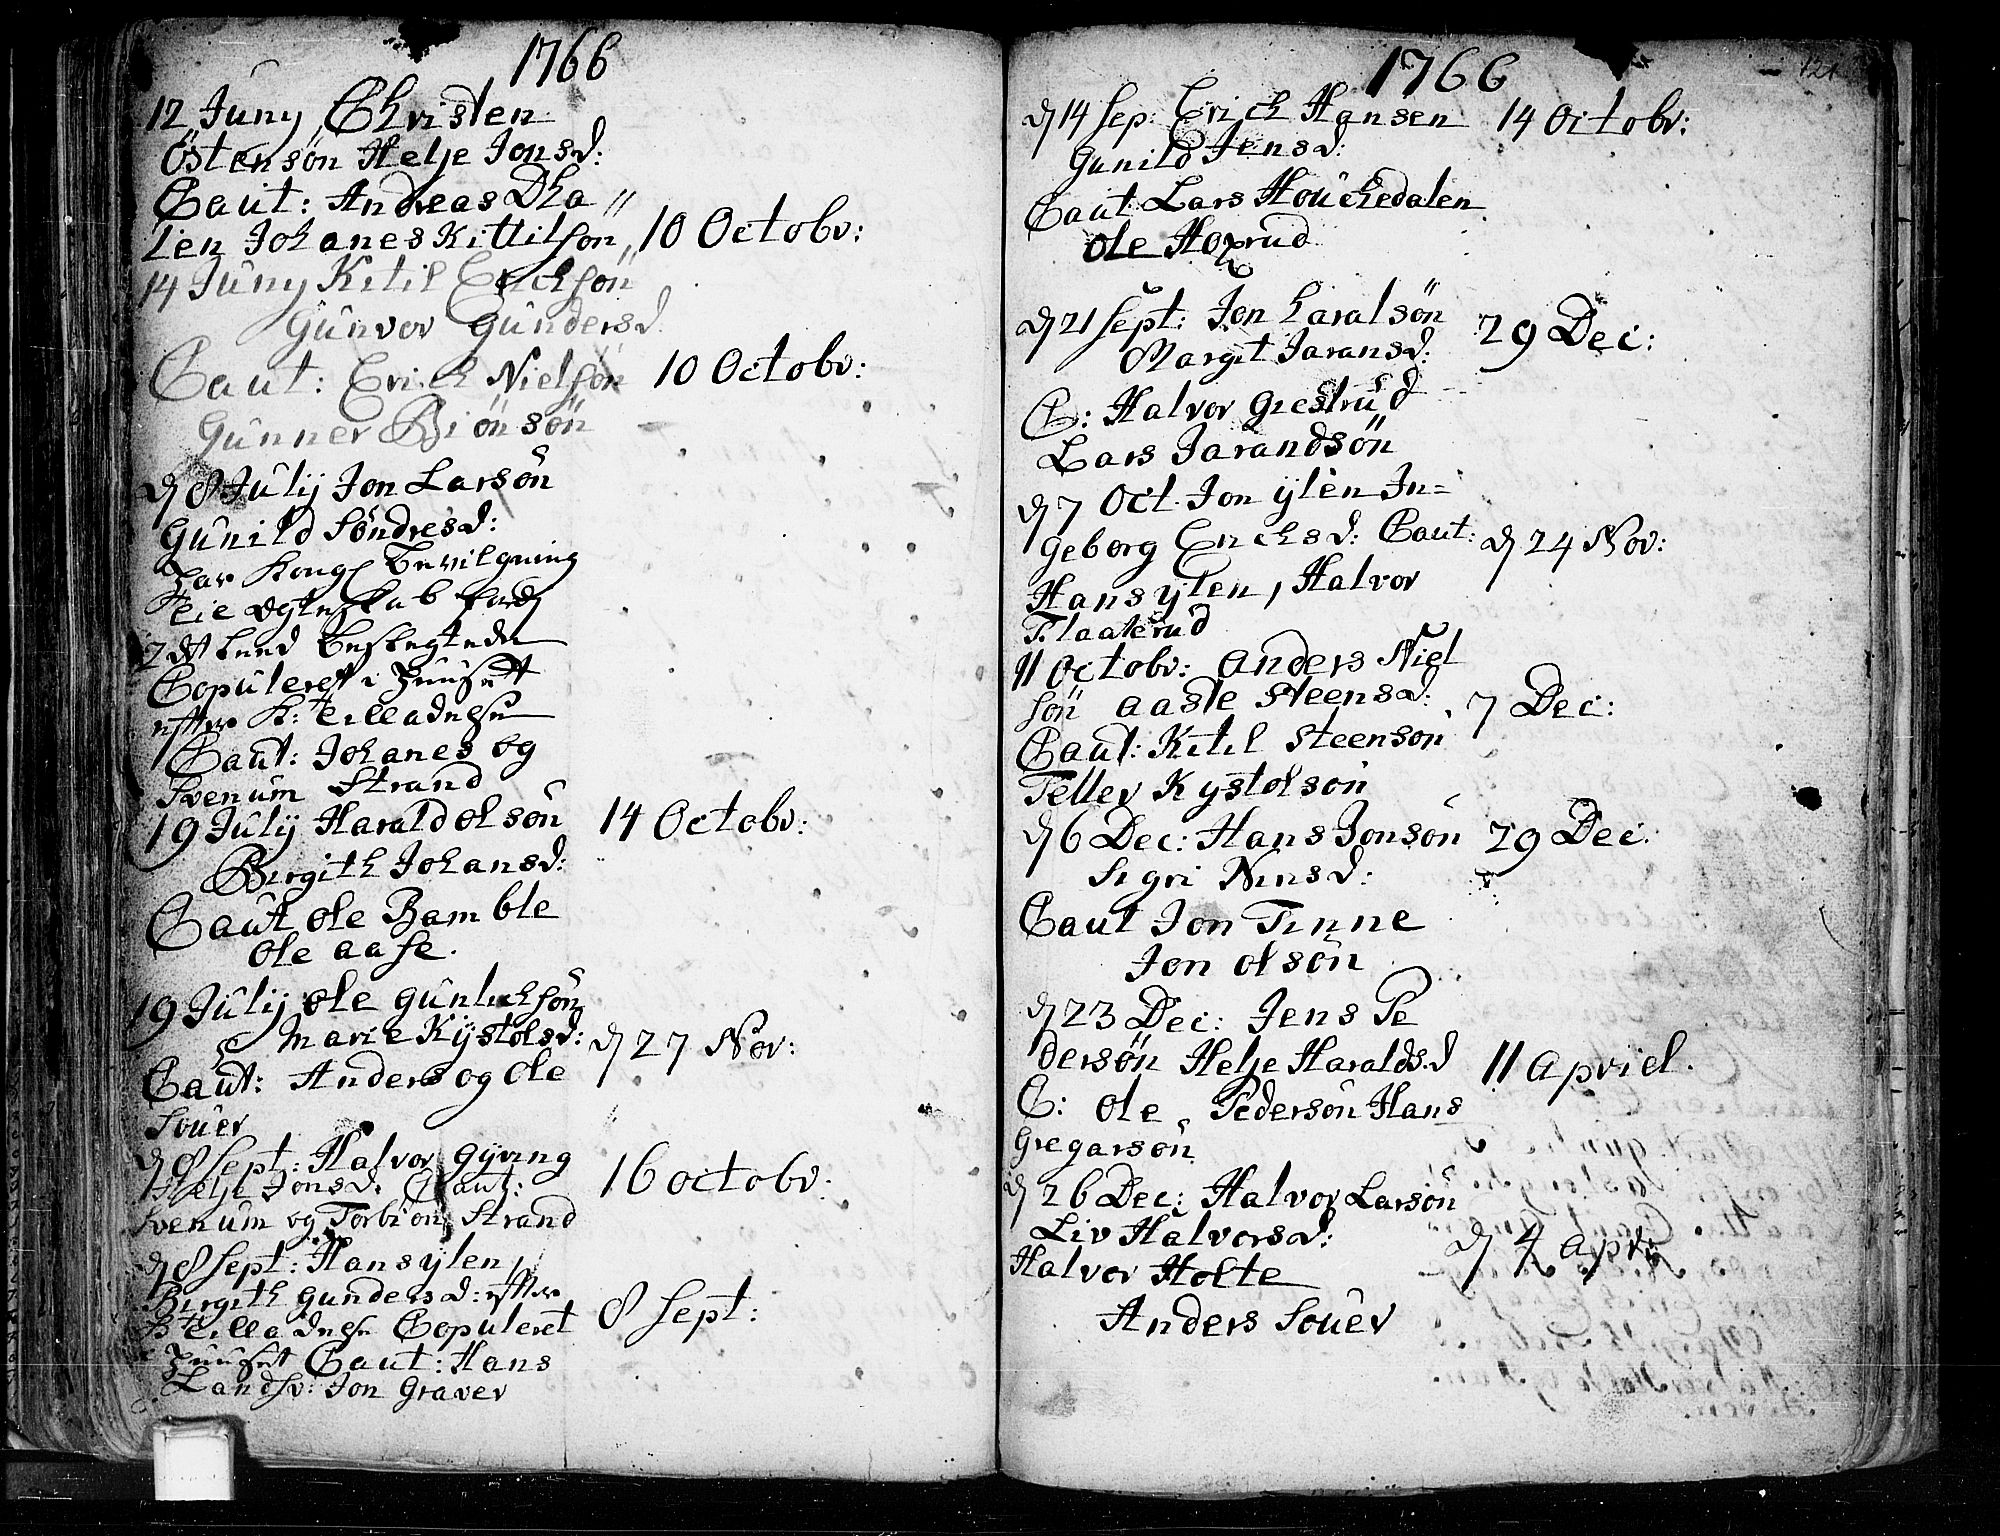 1766
12 Juny Christen
Östensön Helje Jonsd:
Caut: Andreas Dha"
len Johanes Kittilsön, 10 Octobr:
14 Juny Kitil Erichsön
Gunvor Gundersd.
Caut: Erich Nielsön 10 Octobr:
Gunner Biönsön
d 8 Julij Jon Larsön
Gunild Söndresd:
har Kongl Bevilgning
Copuleret i Huuset
Caut: Johanes og
Svenum Strand
19 Julij Harald olsön 14 Octobr:
Birgith Johansd:
Caut ole Bamble
ole aase.
19 Julij ole Gunlichsön
Marie Kystolsd: d 27 Nov:
Caut: Anders og Ole
Souer
d 8 Sept: Halvor Gyving
Helje Jonsd. Caut: 16 octobr:
Svenum og Torbion Strand
d 8 Sept: Hans ylen
Birgith Gundersd: efter
Copuleret 8 Sept:
Huuset Caut: Hans
Landsv: Jon Graver
1766
121
d 14 Sep: Erich Hansen 14 Octobr:
Gunild Jensd:
Caut Lars Houchedalen
ole Hoxrud
d 21 Sept: Jon haralsön 29 Dec:
Margit Jaransd:
C: Halvor Giestrud
Lars Jarandsön
d 7 Oct. Jon ylen In=
geborg Erichsd: Caut: d 24 Nov:
Hans ylen, Halvor
Flaaterud
11 Octobr: Anders Niel
sön aaste Steensd: 7 Dec:
Caut: Kitil Steenson
Tellev Kystolson
d 6 Dec: Hans Jonson 29 Dec.
Sigri Nensd:
Caut Jon Tinne
Jon olsön
d 23 Dec: Jens Pe
dersön Helje Haraldsd 11 Apriel.
C: Ole Pedersön Hans
Gregarsön
d 26 Dec: Halvor Larsön
Liv Halvorsd: d 4 Apr
Halvor Holte
Anders Souer